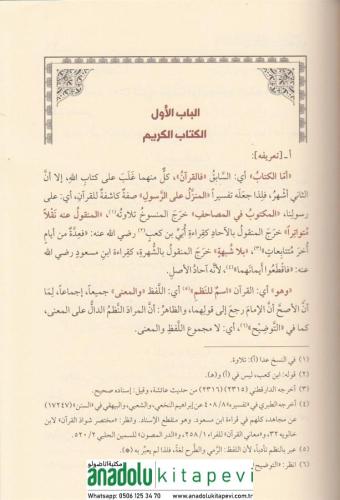 الباب الأول
الكتاب الكريم
أ ـ [تعريفه]:
«أمّا الكتابُ» أي: السابقُ «فالقرآنُ»، كلٌّ منهما غَلَبَ على كتابِ اللهِ، إلا أنَّ
الثاني أشهرُ، فلِذا جعلَه تفسيراً «المنزَّلُ على الرَّسولِ» صفةٌ كاشفةٌ للقرآنِ، أي: على
رسولِنا، «المكتوبُ في المصاحفِ» خرَجَ المنسوخُ تلاوتُه(١)، «المنقولُ عنه نَقْلاً
مُتواتِراً» خرَجَ المنقولُ بالآحادِ كقِراءةِ أُبَيِّ بنِ كعبٍ(٢) رضي الله عنه: «فعِدَّةٌ من أيامٍ
أُخَرَ مُتتابِعاتٍ»(٣)، «بلا شُبهةٍ» خرَجَ المنقولُ بالشُّهرةِ، كقِراءةِ ابنِ مسعودٍ رضي الله
عنه: «فاقْطَعُوا أيمانَهما»(٤)، لأنَّه آحادُ الأصلِ.
«وهو» أي: القرآن «اسمٌ للنَّظمِ»(٥) أي: اللَّفظِ «والمعنى» جميعاً، إجماعاً، لِمَا
أنَّ الأصحَّ أنَّ الإمامَ رجعَ إلى قولِهما، والظاهرُ: أنَّ المرادَ النَّظْمُ الدالُّ على المعنى،
كما في «التَّوضِيحِ»(٦)، أي: لا مجموع اللَّفظِ والمعنى.
(١) في النسخ عدا (أ): تلاوة.
(٢) قوله: ابن كعب، ليس في (أ) و(هـ).
(٣) أخرجه الدارقطني (٢٣١٥) (٢٣١٦) من حديث عائشة، وقيل: إسناده صحيح.
(٤) أخرجه الطبري في «تفسيره» ٤٠٨/٨ عن إبراهيم النخعي والشعبي، والبيهقي في «السنن» (١٧٢٤٧)
عن مجاهد، كلهم في قراءة ابن مسعود. وهو مقطع الإسناد. وانظر: «مختصر شواذ القرآن» لابن
خالويه ٣٢، و«معاني القرآن» للفراء ٢٥٨/١، و«الدر المصون» للسمين الحلبي ٥٢٠/٢.
(٥) عبر بالنظم تأدباً، لأن اللفظ: الرمي لغة، فلذا لم يعبّر به (هـ).
(٦) انظر: «التوضيح
مكتبة اناضولو
anadolu kitapevi
Whatsapp: 0506 125 34 70 www.anadolukitapevi.com